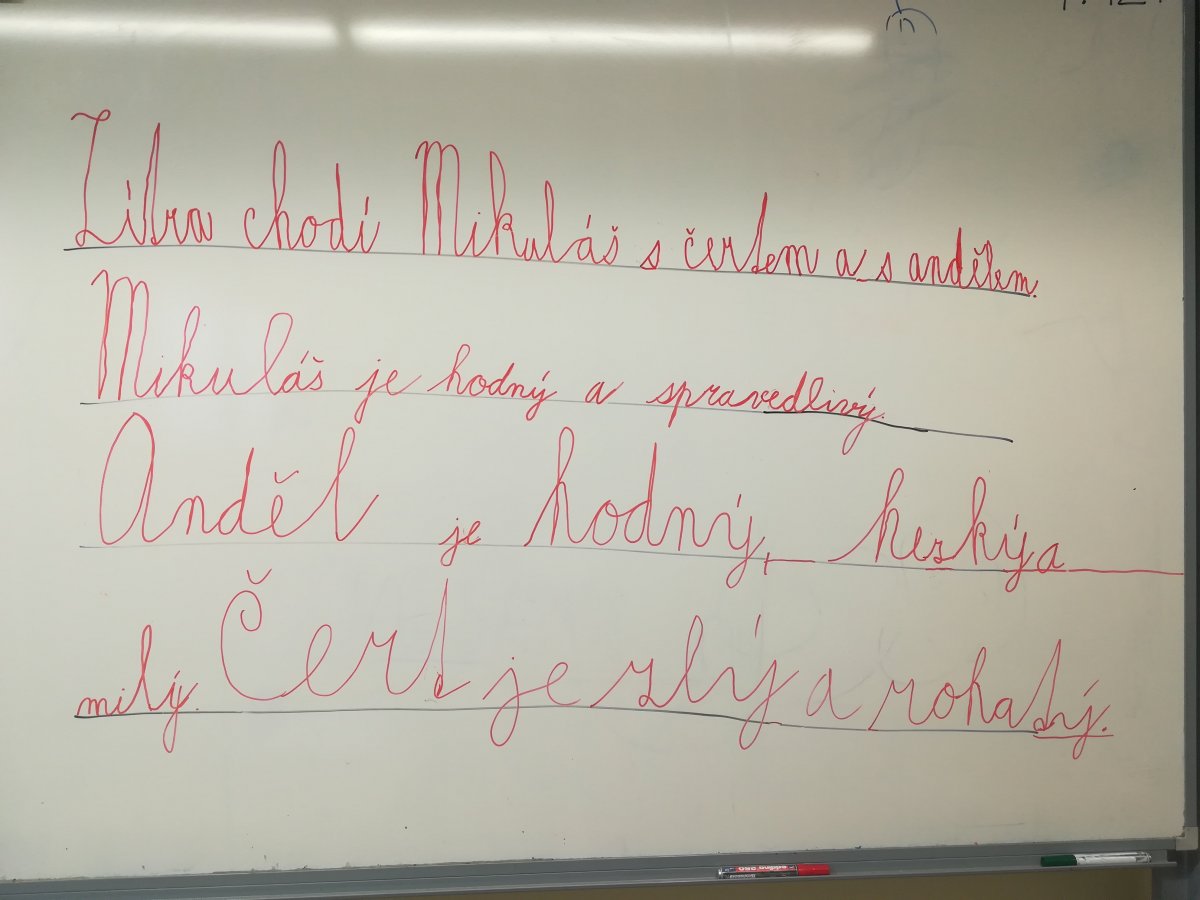 Zítra chodí Mikuláš s čertem a s andělem.
Mikuláš je hodný a spravedlivý.
Anděl je hodný, hezký a
milý. Čert je zlý a rohatý.